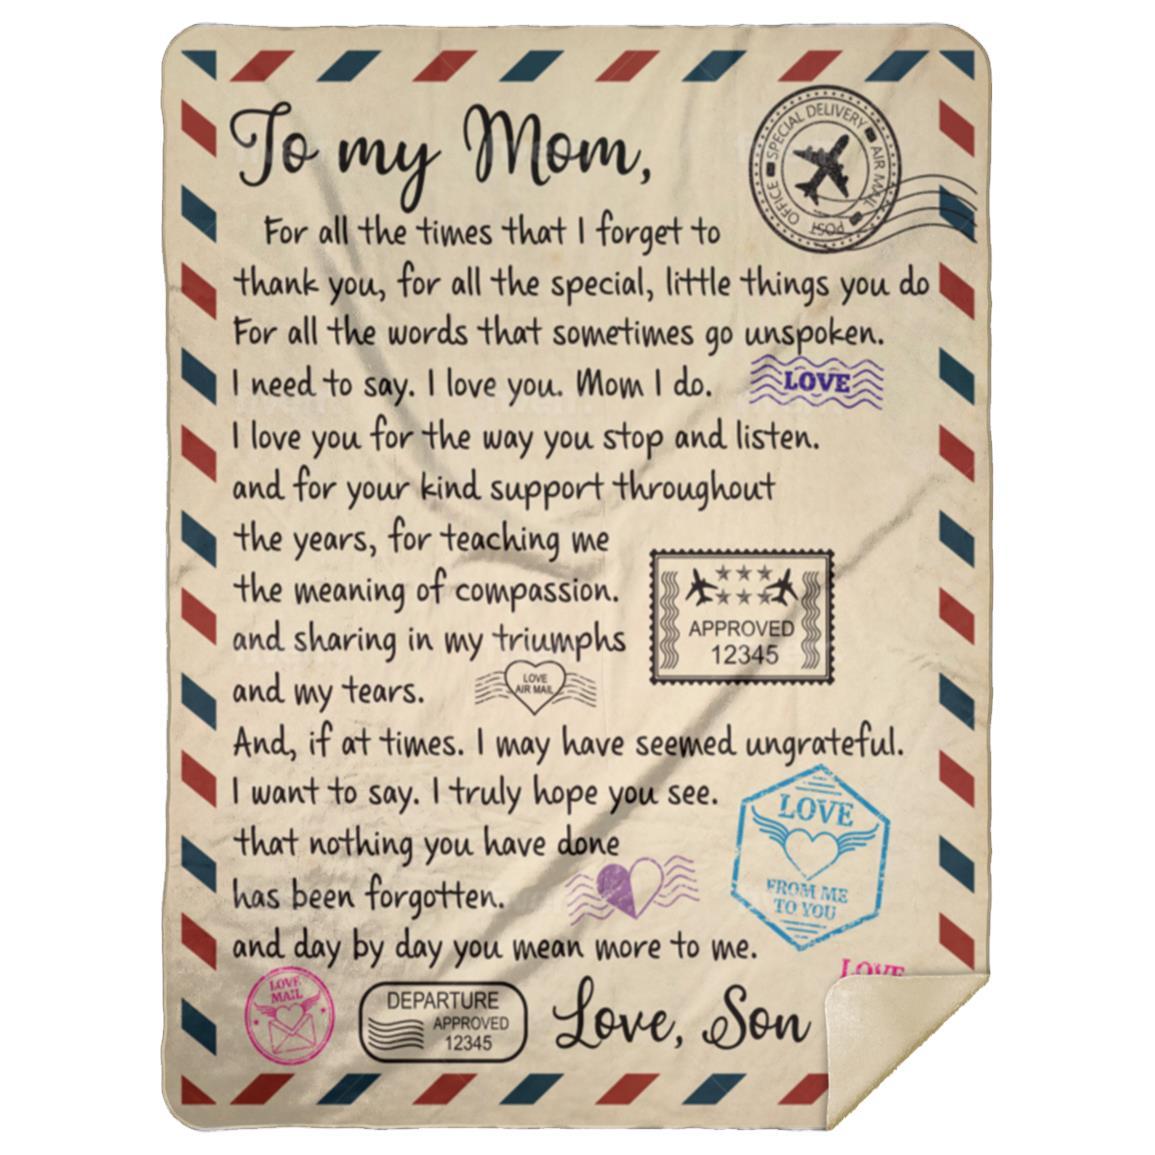 To my Mom,
SPECIAL DELIVERY
AIR MAIL
POST
OFFICE
For all the times that I forget to
thank you, for all the special, little things you do
For all the words that sometimes go unspoken.
I need to say. I love you. Mom I do.
LOVE
I love you for the way you stop and listen.
and for your kind support throughout
the years, for teaching me
the meaning of compassion.
APPROVED
12345
and sharing in my triumphs
and my tears.
LOVE
AIR MAIL
And, if at times. I may have seemed ungrateful.
I want to say. I truly hope you see.
LOVE
FROM ME
TO YOU
that nothing you have done
has been forgotten.
and day by day you mean more to me.
LOVE
LOVE
MAIL
DEPARTURE
APPROVED
12345
Love, Son